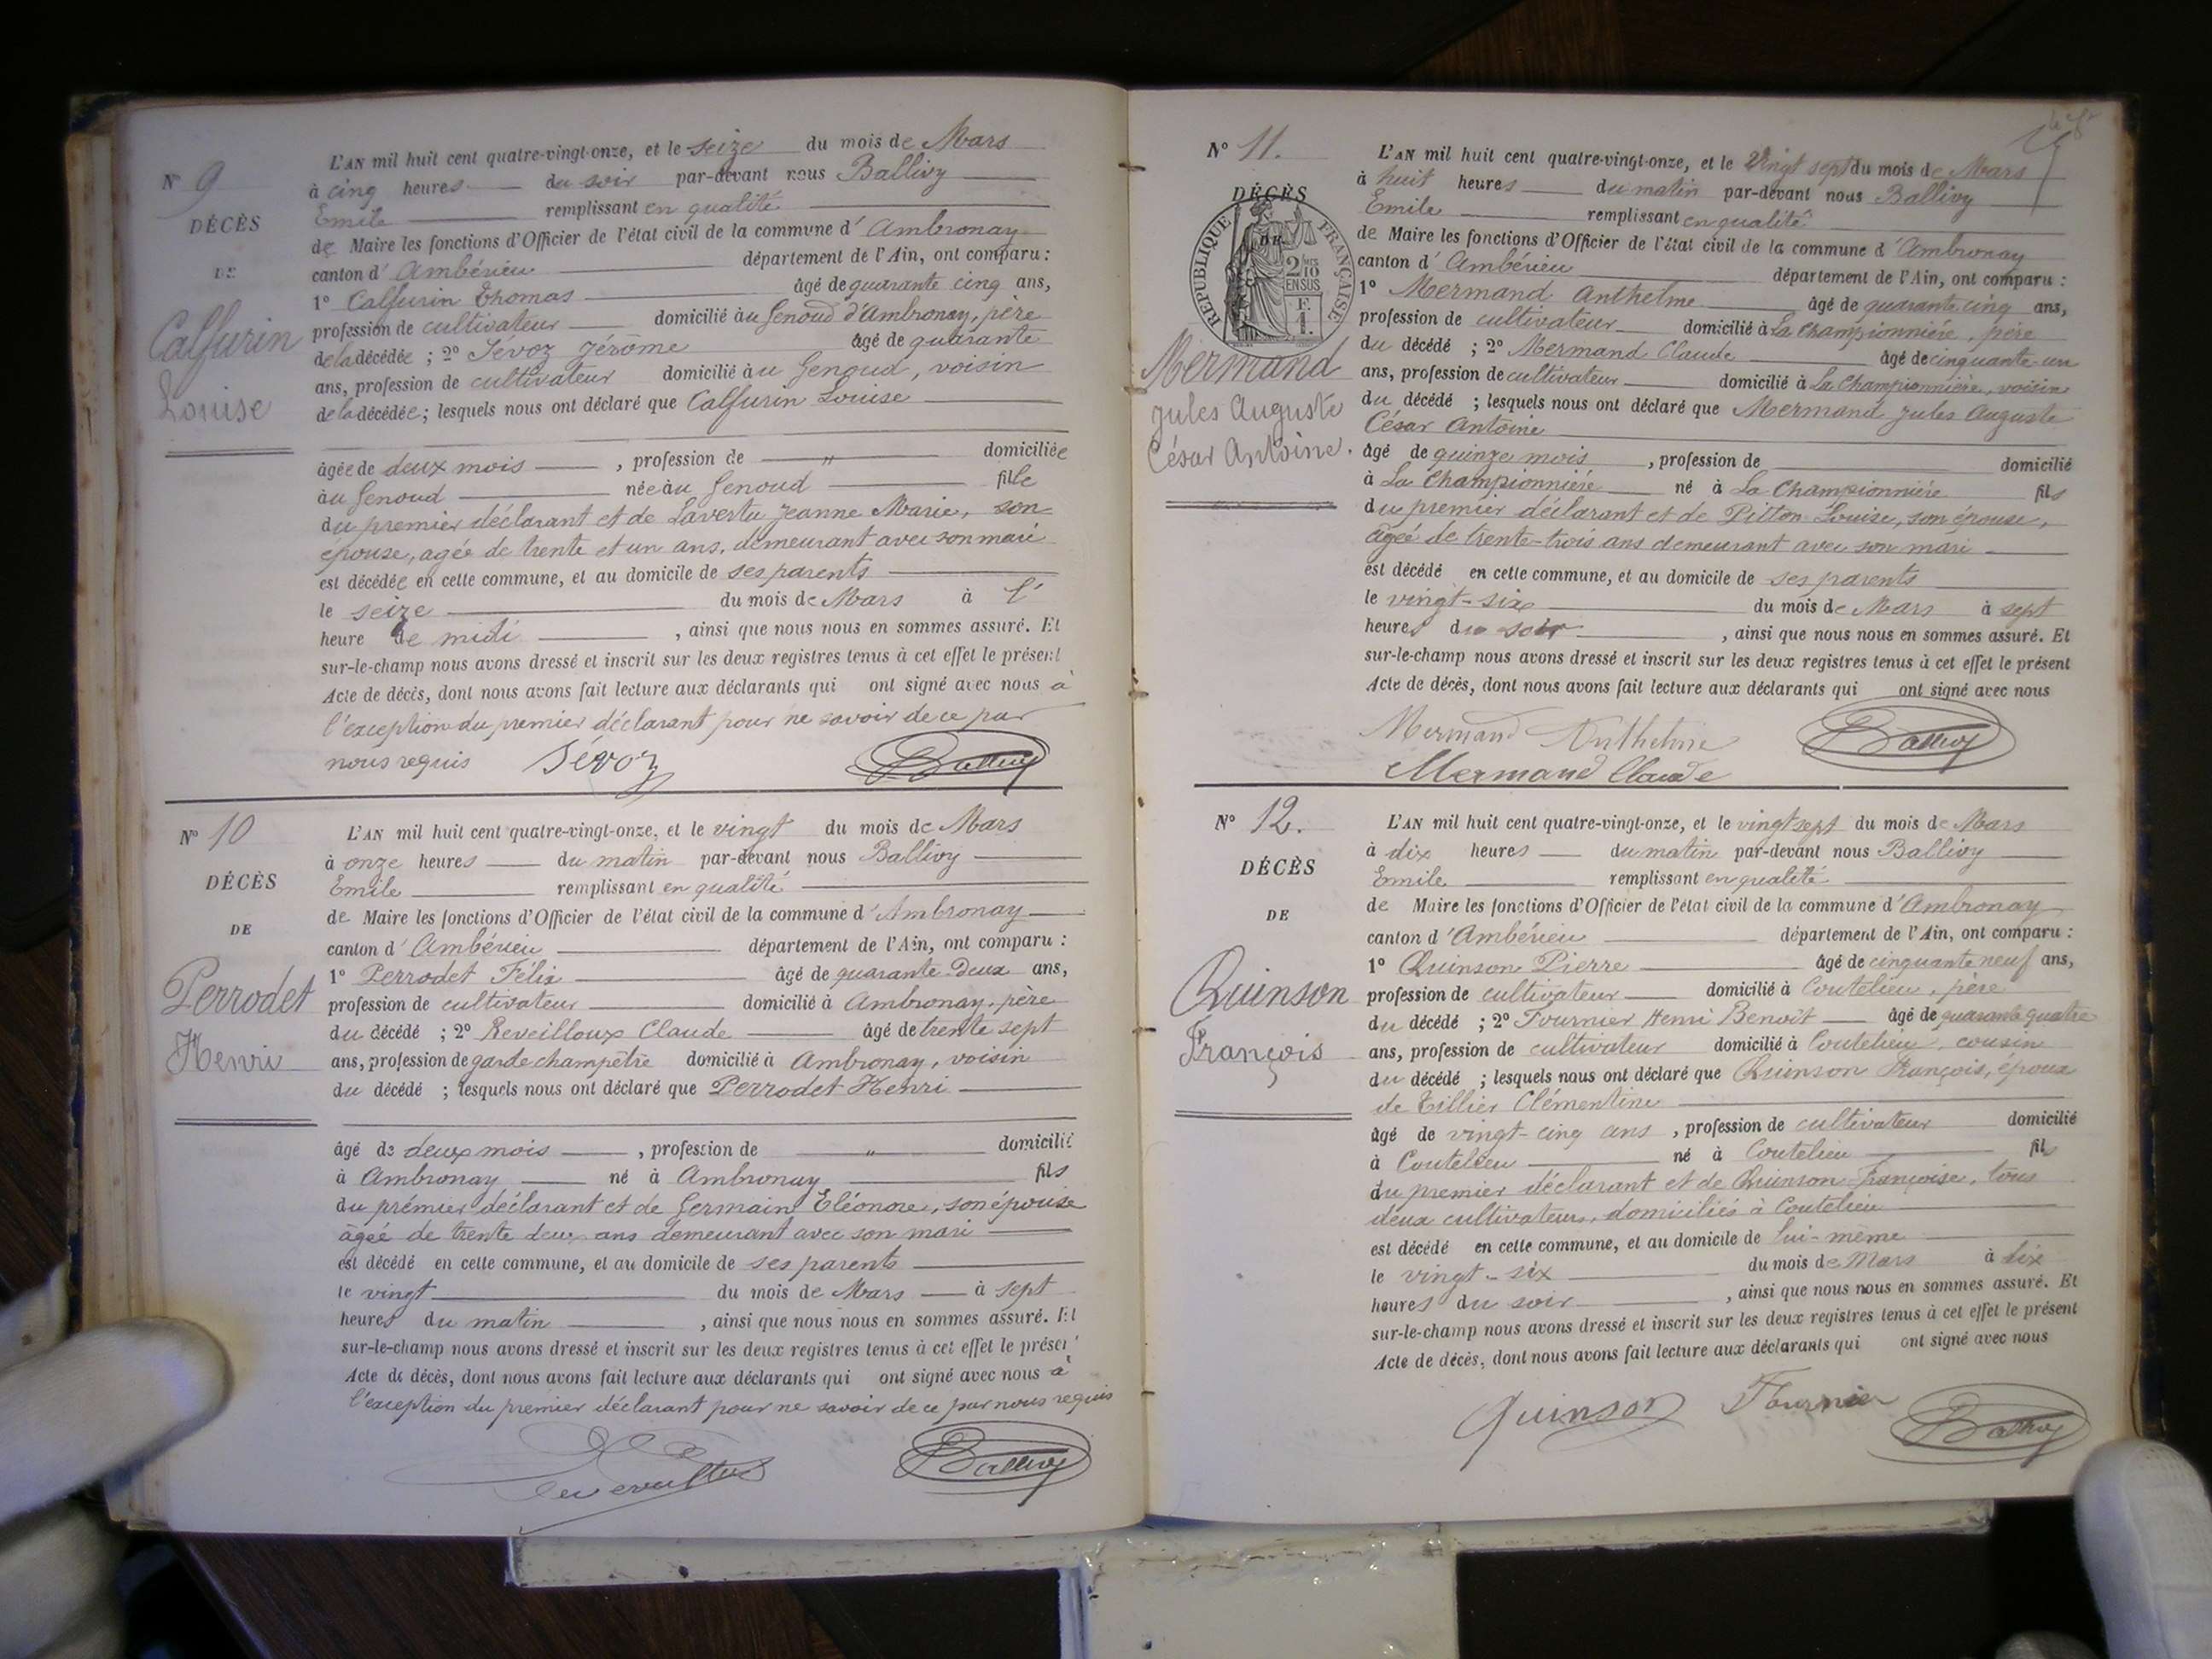 N° 9
DÉCÈS
DE
Calfurin
Louise
L'AN mil huit cent quatre-vingt-onze, et le seize du mois de Mars
à cinq heures du soir par-devant nous Ballivy
Emile remplissant en qualité
de Maire les fonctions d'Officier de l'état civil de la commune d'Ambronay
canton d'Ambérieu département de l'Ain, ont comparu :
1° Calfurin Thomas âgé de quarante cinq ans,
profession de cultivateur domicilié au Genoud d'Ambronay, père
de la décédée ; 2° Sévoz Jérôme âgé de quarante
ans, profession de cultivateur domicilié au Genoud, voisin
de la décédée ; lesquels nous ont déclaré que Calfurin Louise
âgée de deux mois , profession de " domiciliée
au Genoud née au Genoud fille
du premier déclarant et de Laverta Jeanne Marie, son
épouse, agée de trente et un ans, demeurant avec son mari
est décédée en cette commune, et au domicile de ses parents
le seize du mois de Mars à l'
heure de midi , ainsi que nous nous en sommes assuré. Et
sur-le-champ nous avons dressé et inscrit sur les deux registres tenus à cet effet le présent
Acte de décès, dont nous avons fait lecture aux déclarants qui ont signé avec nous à
l'exception du premier déclarant pour ne savoir de ce par
nous requis Sévoz Ballivy
N° 10
DÉCÈS
DE
Perrodet
Henri
L'AN mil huit cent quatre-vingt-onze, et le vingt du mois de Mars
à onze heures du matin par-devant nous Ballivy
Emile remplissant en qualité
de Maire les fonctions d'Officier de l'état civil de la commune d'Ambronay
canton d'Ambérieu département de l'Ain, ont comparu :
1° Perrodet Félix âgé de quarante-deux ans,
profession de cultivateur domicilié à Ambronay, père
du décédé ; 2° Reveilloux Claude âgé de trente sept
ans, profession de garde champêtre domicilié à Ambronay, voisin
du décédé ; lesquels nous ont déclaré que Perrodet Henri
âgé de deux mois , profession de " domicilié
à Ambronay né à Ambronay fils
du prémier déclarant et de Germain Eléonore, son épouse
âgée de trente deux ans demeurant avec son mari
est décédé en cette commune, et au domicile de ses parents
le vingt du mois de Mars à sept
heures du matin , ainsi que nous nous en sommes assuré. Et
sur-le-champ nous avons dressé et inscrit sur les deux registres tenus à cet effet le présent
Acte de décès, dont nous avons fait lecture aux déclarants qui ont signé avec nous à
l'exception du premier déclarant pour ne savoir de ce par nous requis
Ballivy
N° 11.
DÉCÈS
DE
REPUBLIQUE FRANÇAISE
2/10 EN SUS
F. 1.
Mermand
Jules Auguste
César Antoine.
L'AN mil huit cent quatre-vingt-onze, et le Vingt sept du mois de Mars
à huit heures du matin par-devant nous Ballivy
Emile remplissant en qualité
de Maire les fonctions d'Officier de l'état civil de la commune d'Ambronay
canton d'Ambérieu département de l'Ain, ont comparu :
1° Mermand Anthelme âgé de quarante cinq ans,
profession de cultivateur domicilié à La Championnière, père
du décédé ; 2° Mermand Claude âgé de cinquante-un
ans, profession de cultivateur domicilié à La Championnière, voisin
du décédé ; lesquels nous ont déclaré que Mermand Jules Auguste
César Antoine
âgé de quinze mois , profession de domicilié
à La Championnière né à La Championnière fils
du premier déclarant et de Pitton Louise, son épouse,
âgée de trente-trois ans demeurant avec son mari
est décédé en cette commune, et au domicile de ses parents
le vingt-six du mois de Mars à sept
heures du soir , ainsi que nous nous en sommes assuré. Et
sur-le-champ nous avons dressé et inscrit sur les deux registres tenus à cet effet le présent
Acte de décès, dont nous avons fait lecture aux déclarants qui ont signé avec nous
Mermand Anthelme Ballivy
Mermand Claude
N° 12.
DÉCÈS
DE
Quinson
François
L'AN mil huit cent quatre-vingt-onze, et le vingt sept du mois de Mars
à dix heures du matin par-devant nous Ballivy
Emile remplissant en qualité
de Maire les fonctions d'Officier de l'état civil de la commune d'Ambronay
canton d'Ambérieu département de l'Ain, ont comparu :
1° Quinson Pierre âgé de cinquante neuf ans,
profession de cultivateur domicilié à Coutelieu, père
du décédé ; 2° Fournier Henri Benoit âgé de quarante quatre
ans, profession de cultivateur domicilié à Coutelieu, cousin
du décédé ; lesquels nous ont déclaré que Quinson François, époux
de Tillier Clémentine
âgé de vingt-cinq ans , profession de cultivateur domicilié
à Coutelieu né à Coutelieu fils
du premier déclarant et de Quinson Françoise, tous
deux cultivateurs, domiciliés à Coutelieu
est décédé en cette commune, et au domicile de lui-même
le vingt-six du mois de Mars à dix
heures du soir , ainsi que nous nous en sommes assuré. Et
sur-le-champ nous avons dressé et inscrit sur les deux registres tenus à cet effet le présent
Acte de décès, dont nous avons fait lecture aux déclarants qui ont signé avec nous
Quinson Fournier Ballivy